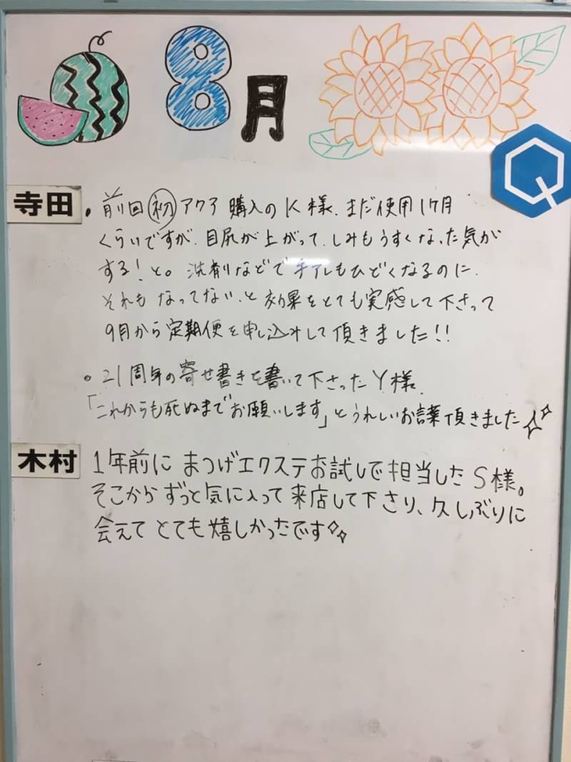 8月
寺田
・前回㊞初 アクア 購入のK様、まだ使用1ヶ月
くらいですが、目尻が上がって、しみもうすくなった気が
する！と。洗剤などで手アレもひどくなるのに、
それも なってない、と効果をとても実感して下さって
9月から定期便を申し込みして頂きました！！
。21周年の寄せ書きを書いて下さったY様、
「これからも死ぬまでお願いします」とうれしいお言葉頂きました
木村
1年前に まつげエクステお試しで担当したS様。
そこからずっと気に入って来店して下さり、久しぶりに
会えて とても嬉しかったです